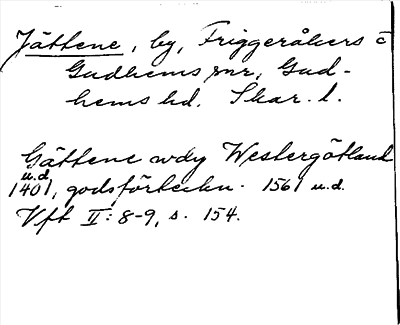 Jättene, by, Friggeråkers o
Gudhems snr, Gud-
hems hd. Skar. l.
Gättene wdy Westergötland
u.d.
1401, godsförteckn. 1561 u.d.
Vft II: 8-9, s. 154.